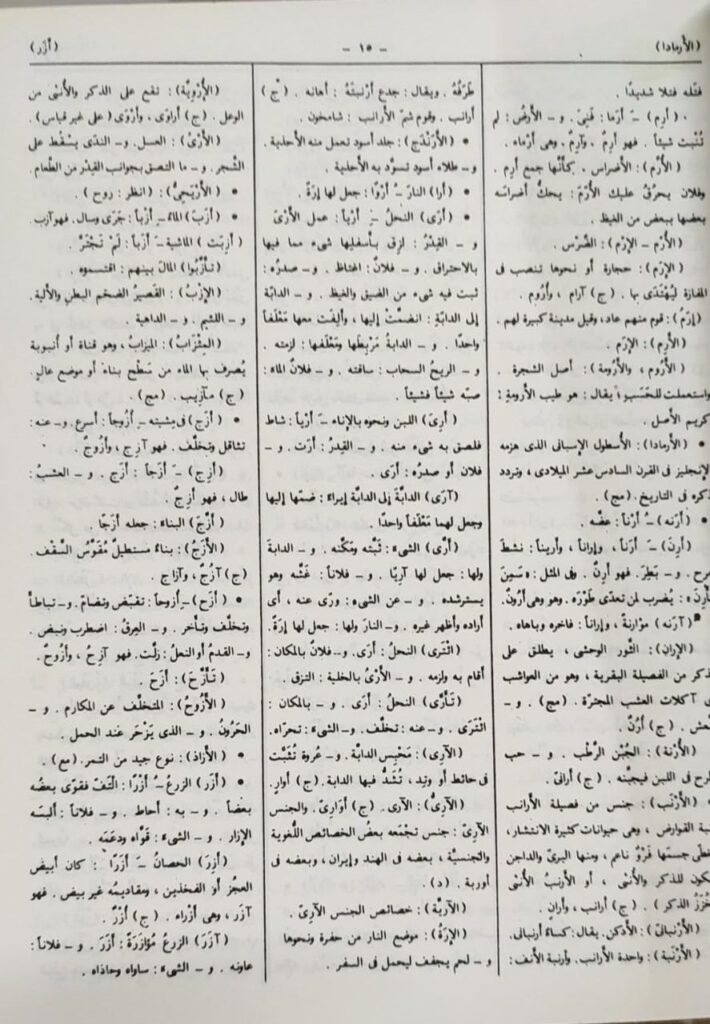 (الأرمادا)
– ١٥ –
(أزر)
فتله فتلا شديدًا .
(أرِم) – أرَما : فَنِىَ . و – الأرضُ : لم
تُنْبت شيئاً . فهو أرِمٌ ، وآرِمٌ . وهى أرْماء .
(الأُرَّم) : الأضراس . كأنَّها جمع آرم .
وفلان يحرّق عليك الأُرَّمَ : يحكُّ أضراسَه
بعضها ببعض من الغيظ .
(الأَرْم – الإرْم) : الضِّرْس .
(الإرَم) : حجارة أو نحوها تنصب فى
المفازة ليُهْتَدَى بها . (ج) آرام ، وأُروم .
(إرَمُ) : قوم منهم عاد ، وقيل مدينة كبيرة لهم .
(الأَرِم) : الإرَم .
(الأَرُوم ، والأَرُومة) : أصل الشجرة .
واستعملت للحَسَب يقال : هو طيب الأرومةِ :
كريم الأصل .
• (الأرمادا) : الأسطول الإسبانى الذى هزمه
الإنجليز فى القرن السادس عشر الميلادى ، وتردد
ذكره فى التاريخ . (مج) .
• (أرَنه) – أرْناً : عضَّه .
(أرِنَ) – أرَناً ، وإراناً ، وأريناً : نشط
ومرح . و – بَطِرَ . فهو أرِنٌ . وفى المثل : « سَمِنَ
فأرِنَ » : يُضرب لمن تعدّى طَوْرَه . وهو وهى أرُونٌ .
(آرَنه) مؤارنةً ، وإراناً : فاخره وباهاه .
(الإران) : الثور الوحشى ، يطلق على
ذكر من الفصيلة البقرية ، وهو من العواشب
آكلات العشب المجترّة . (مج) . و –
النعش . (ج) أُرُنٌ .
(الأُرْنة) : الجُبْن الرَّطْب . و – حب
يطرح فى اللبن فيجبِّنه . (ج) أرانٌ .
• (الأرْنَب) : جنس من فصيلة الأرانب
رتبة القوارض ، وهى حيوانات كثيرة الانتشار ،
يغطى جسمها فَرْوٌ ناعم ، ومنها البرىّ والداجن
يكون للذكر والأنثى ، أو الأرنبُ الأنثى
والخُزَزُ الذكر ) . (ج) أرانب ، وأرانٍ .
(الأَرْنبانىّ) : الأدكن . يقال : كساءٌ أرنبانى .
(الأَرْنَبة) : واحدة الأرانب . وأرنبة الأنف :
طَرَفُهُ . ويقال : جدع أرْنبتَهُ : أهانه . (ج)
أرانب . وقوم شُمُّ الأرانب : شامخون .
• (الأَرَنْدَج) : جلد أسود تعمل منه الأحذية .
و – طلاء أسود تسوَّد به الأحذية .
• (أرا) النارَ – أرْوًا : جعل لها إرةً .
• (أرَى) النحلُ – أرْياً : عمل الأرْىَ
و – القِدْرُ : لزق بأسفلها شىء مما فيها
بالاحتراق . و – فلانٌ : اغتاظ . و – صدرُه :
ثبت فيه شىء من الضيق والغيظ . و – الدابة
إلى الدابَّةِ : انضمَّتْ إليها ، وألِفت معها مَعْلَفاً
واحدًا . و – الدابةُ مَرْبِطَها ومَعْلَفها : لزمته .
و – الريحُ السحاب : ساقته . و – فلانٌ الماء :
صبّه شيئاً فشيئاً .
(أرِىَ) اللبن ونحوه بالإناء – أرْياً : شاط
فلصق به شىء منه . و – القِدرُ : أرَت . و –
فلان أو صدرُه : أرَى .
(آرَى) الدابَّةَ إلى الدابة إيراءً : ضمَّها إليها
وجعل لهما مَعْلَفاً واحدًا .
(أرَّى) الشىءَ : ثبَّته ومَكَّنه . و – الدابةَ
ولها : جعل لها آرِيًّا . و – فلاناً : غَشَّه وهو
يسترشده . و – عن الشىء : ورَّى عنه ، أى
أراده وأظهر غيره . و – النارَ ولها : جعل لها إرةً .
(ائْترى) النحلُ : أرَى . و – فلانٌ بالمكان :
أقام به ولزمه . و – الأَرْىُ بالخلية : التزق .
(تَأرَّى) النحلُ : أرَى . و – بالمكان :
ائْترَى . و – عنه : تخلَّف . و – الشىءَ : تحرّاه .
(الآرِى) : مَحْبِس الدابَّة . و – عروة تُثَبَّت
فى حائط أو وتد ، تُشَدُّ فيها الدابة . (ج) أوارٍ .
(الآرِىُّ) : الآرى . (ج) أوَارِىّ . والجنس
الآرىّ : جنس تجْمَعه بعضُ الخصائص اللُّغوية
والجنسيَّة ، بعضه فى الهند وإيران ، وبعضه فى
أوربة . (د) .
(الآرية) : خصائص الجنس الآرىّ .
(الإرَةُ) : موضع النار من حفرة ونحوها
و – لحم يجفف ليحمل فى السفر .
(الأُرْوِيَّة) : تقع على الذكر والأنثى من
الوعل . (ج) أراوَى ، وأرْوَى (على غير قياس) .
(الأَرْىُ) : العسل . و – الندَى يسْقُط على
الشجر . و – ما التصق بجوانب القِدْر من الطعام .
• (الأَرْيَحِىُّ) : (انظر : روح) .
• (أزَب) الماءُ – أزْباً : جَرَى وسال . فهو آزب .
(أزِبت) الماشية – أزَباً : لَمْ تَجْتَرَّ .
(تأزَّبُوا) المالَ بينهم : اقتسموه .
(الإزْبُ) : القصيرُ الضخم البطنِ والألية .
و – اللئيم . و – الداهية .
(المِئزَابُ) : الميزابُ ، وهو قناة أو أنبوبة
يُصرف بها الماء من سَطْح بناءٍ أو موضع عالٍ .
(ج) مآزيب . (مج) .
• (أزَج) فى مِشيته – أزُوجاً : أسرع . و – عنه :
تثاقل وتخلَّف . فهو آزجٌ ، وأزوجٌ .
(أزِج) – أزَجاً : أزَج . و – العشبُ :
طال . فهو أزِجٌ .
(أزَّجَ) البناءَ : جعله أزَجًا .
(الأزَجُ) : بناءٌ مستطيلٌ مُقَوَّسُ السَّقْف .
(ج) آزُجٌ ، وآزاج .
• (أزَح) – أزوحاً : تقبَّض وتضامّ . و – تباطأ
وتخلَّف وتأخر . و – العِرقُ : اضطرب ونبض .
و – القدمُ أو النعلُ : زلَّت . فهو آزِحٌ ، وأزُوحٌ .
(تَأزَّحَ) : أزَحَ .
(الأَزُوحُ) : المتخلِّف عن المكارم . و –
الحَرُون . و – الذى يَزْحَر عند الحمل .
• (الأزاذ) : نوع جيد من التمر . (مع) .
• (أزَر) الزرعُ – أزْرًا : الْتَفّ فقوَّى بعضُه
بعضاً . و – به : أحاط . و – فلاناً : ألبسَه
الإزار . و – الشىءَ : قوَّاه ودعَّمه .
(أزِرَ) الحصانُ – أزَرًا : كان أبيض
العجز أو الفخذين ، ومقاديمُه غير بيض . فهو
آزر ، وهى أزْراء . (ج) أُزْرٌ .
(آزَرَ) الزرعُ مُؤازَرَةً : أزَرَ . و – فلاناً :
عاونه . و – الشىءَ : ساواه وحاذاه .